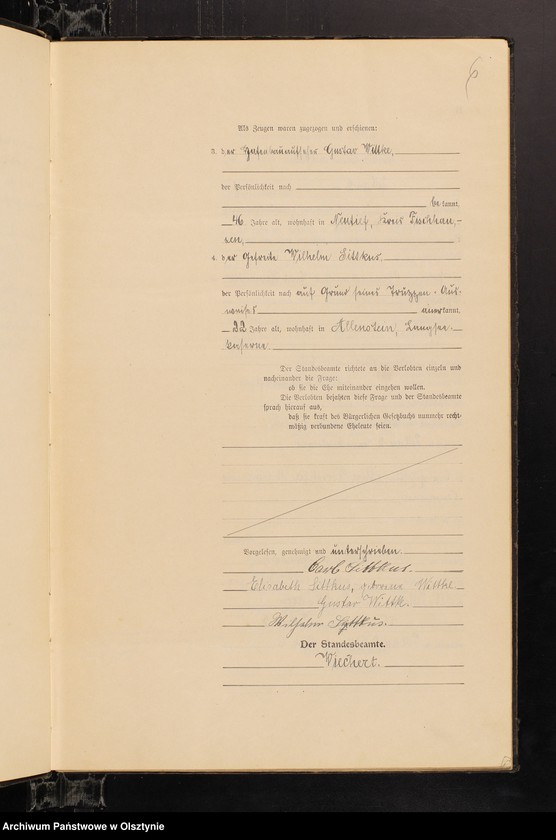 6
Als Zeugen waren zugezogen und erschienen:
3. der Hafenbauaufseher Gustav Wittke,
der Persönlichkeit nach
be kannt,
46 Jahre alt, wohnhaft in Neutief, Kreis Fischhau-
sen,
4. der Gefreite Wilhelm Sittkus.
der Persönlichkeit nach auf Grund seines Truppen-Aus-
weises anerkannt,
22 Jahre alt, wohnhaft in Allenstein, Langsee-
Kaserne.
Der Standesbeamte richtete an die Verlobten einzeln und
nacheinander die Frage:
ob sie die Ehe miteinander eingehen wollen.
Die Verlobten bejahten diese Frage und der Standesbeamte
sprach hierauf aus,
daß sie kraft des Bürgerlichen Gesetzbuchs nunmehr recht-
mäßig verbundene Eheleute seien.
Vorgelesen, genehmigt und unterschrieben.
Carl Sittkus.
Elisabeth Sittkus, geborene Wittke
Gustav Wittk.
Wilhelm Sittkus.
Der Standesbeamte.
Wiechert.
Archiwum Państwowe w Olsztynie